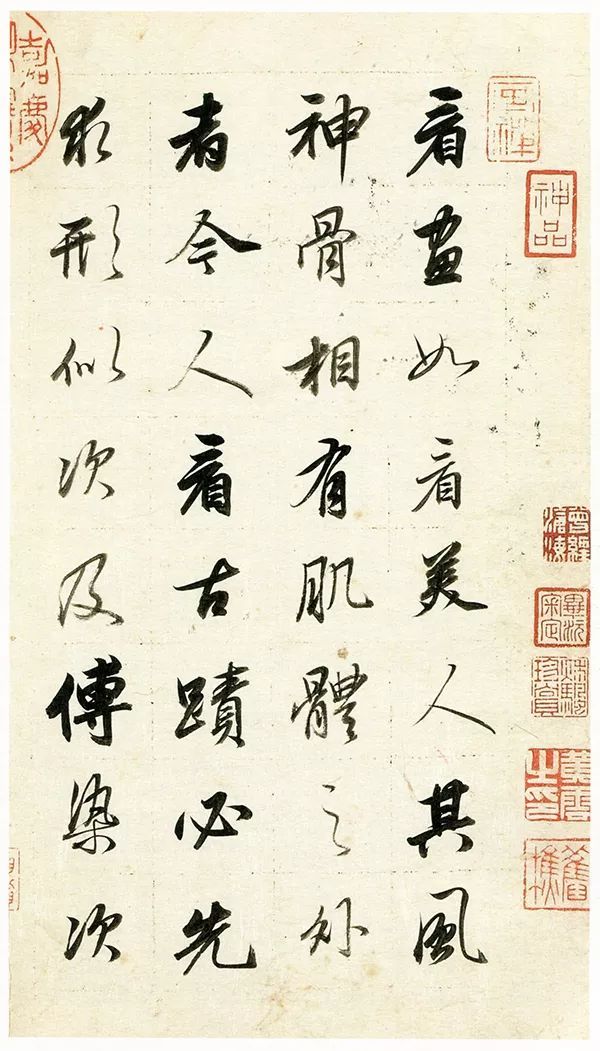 神品
畢沅
審定
看畫如看美人其風
神骨相有肌體之外
者今人看古蹟必先
求形似次及傅染次
嘉慶